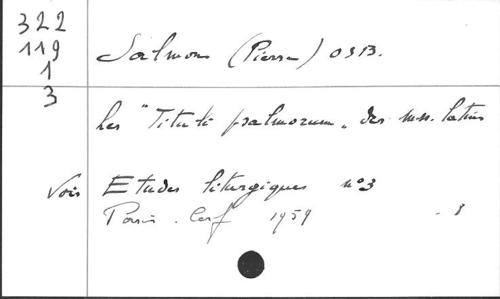 322
119
1
3
Salmon (Pierre) OSB.
Les "Tituli psalmorum" des mss. latins
Voir Etudes liturgiques n°3
Paris. Cerf 1959 - 8